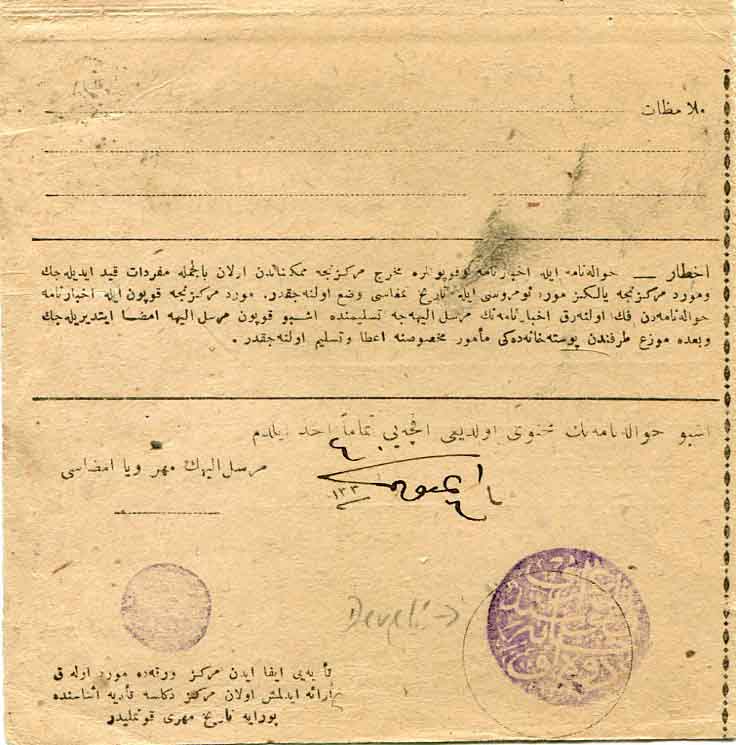 ملاحظات
اخطار — حواله‌نامه ایله اخبارنامه وقوپونلره مخرج مركزنجه ممكناتدن اولان بالجمله مفردات قید ایدیله‌جك
ومورد مركزنجه یالكز مورد نومروسی ایله تاریخ تمغاسی وضع اولنه‌جقدر. مورد مركزنجه قوپون ایله اخبارنامه
حواله‌نامه‌دن فك اولنه‌رق اخبارنامه‌نك مرسل الیهه تسلیمنده اشبو قوپون مرسل الیهه امضا ایتدیریله‌جك
وبعده موزع طرفندن پوسته‌خانه‌ده‌كی مأمور مخصوصنه اعطا وتسلیم اولنه‌جقدر.
اشبو حواله‌نامه‌نك محتوی اولدیغی اقچه‌یی تماماً اخذ ایلدم
مرسل الیهك مهر ویا امضاسی
Develi
تأدیه‌یی ایفا ایدن مركز ورقه‌ده مورد اوله‌رق
ارائه ایدلمش اولان مركز دكلسه تأدیه اثناسنده
بورایه تاریخ مهری قونملیدر